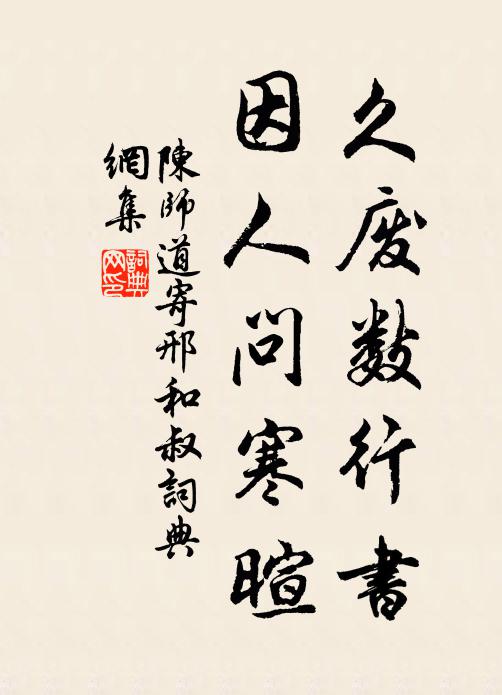 久廢數行書
因人問寒暄
陳師道寄邢和叔詞典
網集
詞典
网印